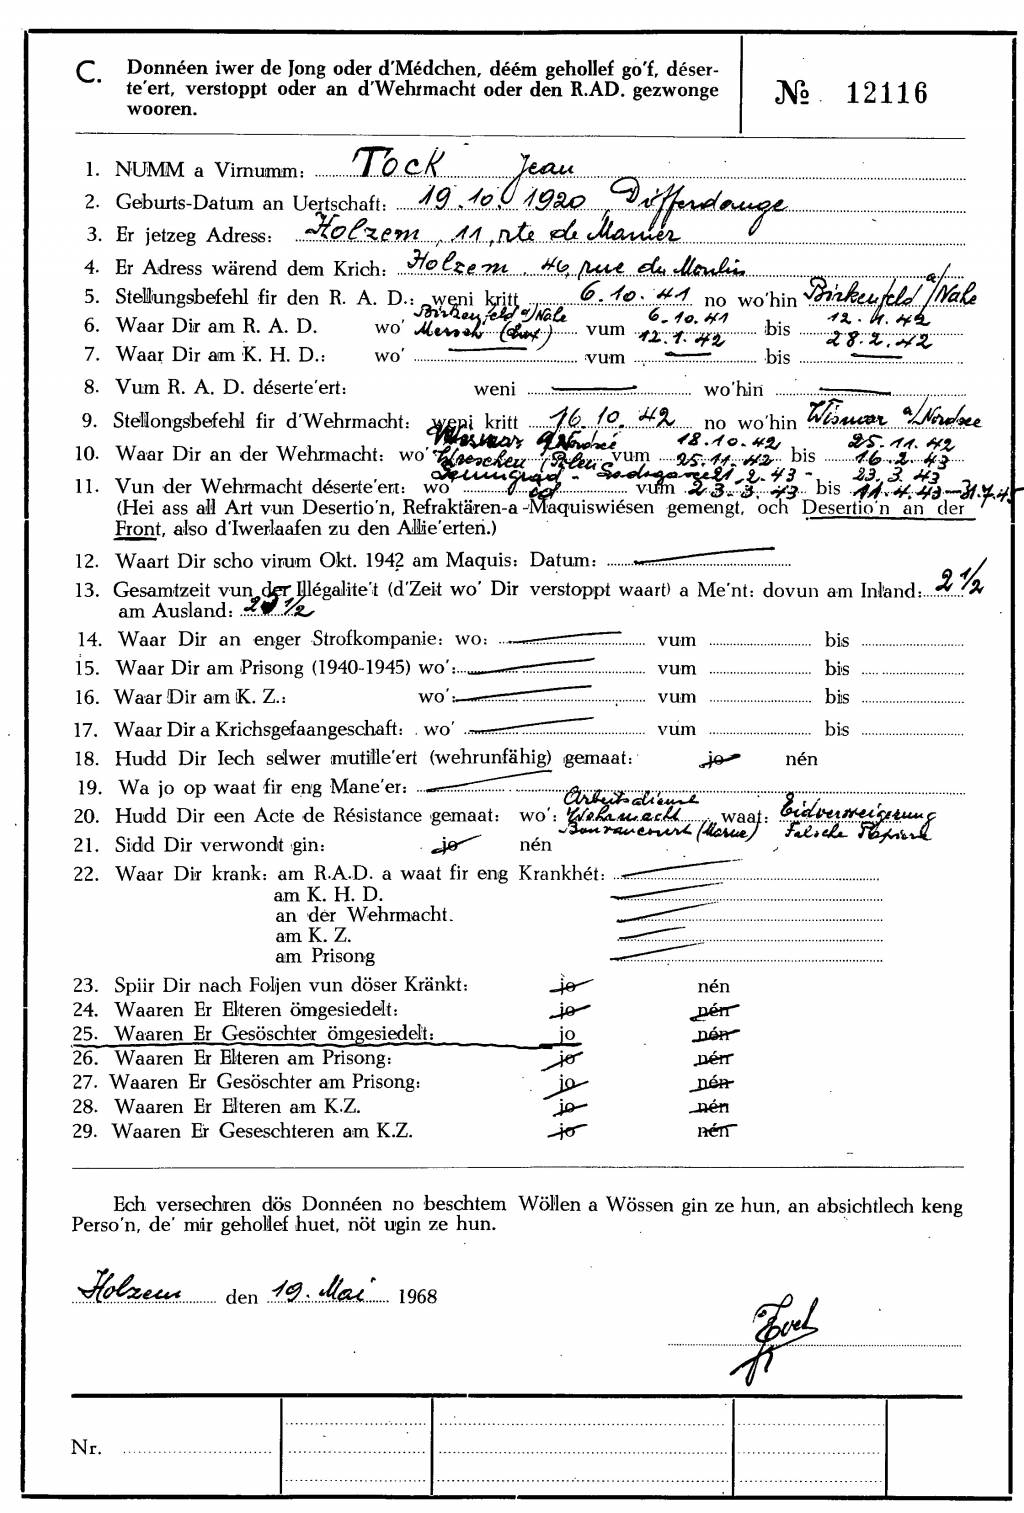 C. Donnéen iwer de Jong oder d'Médchen, déém gehollef go'f, déser-
te'ert, verstoppt oder an d'Wehrmacht oder den R.AD. gezwonge
wooren.
№ 12116
1. NUMM a Virnumm: Tock Jean
2. Geburts-Datum an Uertschaft: 19.10.1920, Differdange
3. Er jetzeg Adress: Holzem, 11, rte de Mamer
4. Er Adress wärend dem Krich: Holzem, 46, rue du Moulin
5. Stellungsbefehl fir den R. A. D.: weni kritt 6.10.41 no wo'hin Birkenfeld a/Nahe
Birkenfeld a/Nahe 6.10.41 12.1.42
6. Waar Dir am R. A. D. wo' Mersch vum 12.1.42 bis 28.2.42
7. Waar Dir am K. H. D.: wo' vum bis
8. Vum R. A. D. déserte'ert: weni wo'hin
9. Stellongsbefehl fir d'Wehrmacht: weni kritt 16.10.42 no wo'hin Wismar a/Nordsee
Wismar a/Nordsee 18.10.42 25.11.42
10. Waar Dir an der Wehrmacht: wo' Wreschen (Polen) vum 25.11.42 bis 16.2.43
Leningrad - 21.2.43 - 23.3.43
11. Vun der Wehrmacht déserte'ert: wo id vum 23.3.43 bis 11.4.43-31.7.45
(Hei ass all Art vun Desertio'n, Refraktären-a-Maquiswiésen gemengt, och Desertio'n an der
Front, also d'Iwerlaafen zu den Allie'erten.)
12. Waart Dir scho virum Okt. 1942 am Maquis: Datum:
13. Gesamtzeit vun der Illégalite't (d'Zeit wo' Dir verstoppt waart) a Me'nt: dovun am Inland: 2 1/2
am Ausland: 2 1/2
14. Waar Dir an enger Strofkompanie: wo: vum bis
15. Waar Dir am Prisong (1940-1945) wo': vum bis
16. Waar Dir am K. Z.: wo': vum bis
17. Waar Dir a Krichsgefaangeschaft: wo' vum bis
18. Hudd Dir Iech selwer mutille'ert (wehrunfähig) gemaat: jo nén
19. Wa jo op waat fir eng Mane'er:
Arbeitsdienst
20. Hudd Dir een Acte de Résistance gemaat: wo': Wehrmacht waat: Eidverweigerung
(Marne) Falsche Papiere
21. Sidd Dir verwondt gin: jo nén
22. Waar Dir krank: am R.A.D. a waat fir eng Krankhét:
am K. H. D.
an der Wehrmacht.
am K. Z.
am Prisong
23. Spiir Dir nach Foljen vun döser Kränkt: jo nén
24. Waaren Er Elteren ömgesiedelt: jo nén
25. Waaren Er Gesöschter ömgesiedelt: jo nén
26. Waaren Er Elteren am Prisong: jo nén
27. Waaren Er Gesöschter am Prisong: jo nén
28. Waaren Er Elteren am K.Z. jo nén
29. Waaren Er Geseschteren am K.Z. jo nén
Ech versechren dös Donnéen no beschtem Wöllen a Wössen gin ze hun, an absichtlech keng
Perso'n, de' mir gehollef huet, nöt ugin ze hun.
Holzem den 19. Mai 1968
Tock
Nr.